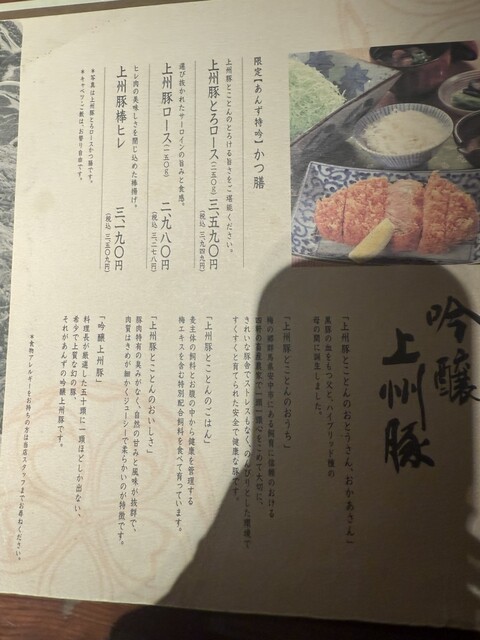 吟醸
上州豚
限定【あんず特吟】かつ膳
上州豚とことんのとろける旨さをご堪能ください。
上州豚とろロース(二五〇g) 三、五九〇円
(税込 三、九四九円)
選び抜かれたサーロインの旨みと食感。
上州豚ロース(二五〇g) 二、九八〇円
(税込 三、二七八円)
ヒレ肉の美味しさを閉じ込めた棒揚げ。
上州豚棒ヒレ 三、一九〇円
(税込 三、五〇九円)
*写真は上州豚とろロースかつ膳です。
*キャベツ・ご飯は、お替り自由です。
「上州豚とことんのおとうさん、おかあさん」
真頭の血をもつ父と、ハイブリッド種の
母の間に誕生しました。
「上州豚とことんのおうち」
梅の郷群馬県安中市にある飼育に信頼のおける
四軒の畜産農家で一頭一頭心をこめて大切に、
きれいな豚舎でストレスもなく、のんびりとした環境で
すくすくと育てられた安全で健康な豚です。
「上州豚とことんのごはん」
麦主体の飼料とお腹の中から健康を管理する
梅エキスを含む特別配合飼料を食べて育っています。
「上州豚とことんのおいしさ」
豚肉特有の臭みがなく、自然の甘みと風味が抜群で、
肉質はきめが細かくジューシーで柔らかいのが特徴です。
「吟醸上州豚」
料理長が厳選した五十頭に一頭ほどしか出ない、
希少で上質な幻の豚、
それがあんずの吟醸上州豚です。
*食物アレルギーをお持ちの方は当店スタッフまでお尋ねください。